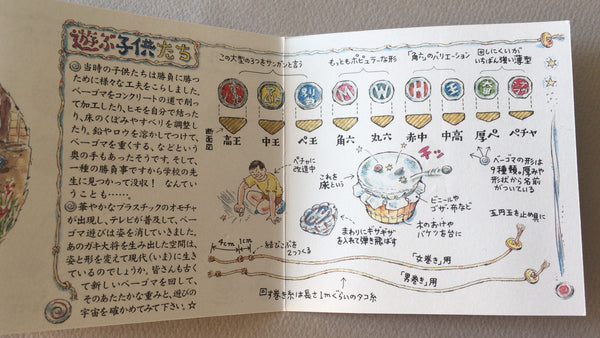 遊ぶ子供たち
◎当時の子供たちは勝負に勝つ
ために様々な工夫をこらしました。
ベーゴマをコンクリートの道で削っ
て加工したり、ヒモを自分で結った
り、床のくぼみやすべりを調整し
たり、鉛やロウを溶かしてつけて、
ベーゴマを重くする、などという
奥の手もあったそうです。そして、
一種の勝負事ですから学校の先
生に見つかって没収! なんてい
うことも……。
◎華やかなプラスチックのオモチャ
が出現し、テレビが普及して、ベー
ゴマ遊びは姿を消していきました。
あのガキ大将を生み出した空間は、
姿と形を変えて現代(いま)に生き
ているのでしょうか。皆さんも古く
て新しいベーゴマを回して、
そのあたたかな重みと、遊びの
宇宙を確かめてみて下さい。☆
この大型の3つをサンガンと言う
もっともポピュラーな形
「角六」のバリエーション
回しにくいが
いちばん強い薄型
断面図
高王
中王
ペ王
角六
丸六
赤中
中高
厚ペ
ペチャ
ペチャに
改造中
これを
床という
チッ
ベーゴマの形は
9種類。厚みや
形状から名前
がついている
ビニールや
ゴザ・布など
木のおけや
バケツを台に
まわりにギザギザ
を入れて弾き飛ばす
五円玉を止め具に
4cm
1cm
結びこぶを
2つつくる
「女巻き」用
「男巻き」用
回す巻き糸は長さ1mぐらいのタコ糸